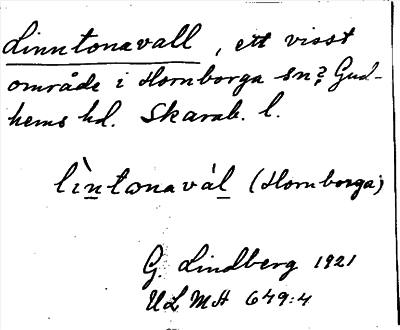 Linntonavall, ett visst
område i Hornborga sn, Gud-
hems hd. Skarab. l.
lìntonavál (Hornborga)
G. Lindberg 1921
ULMA 649:4